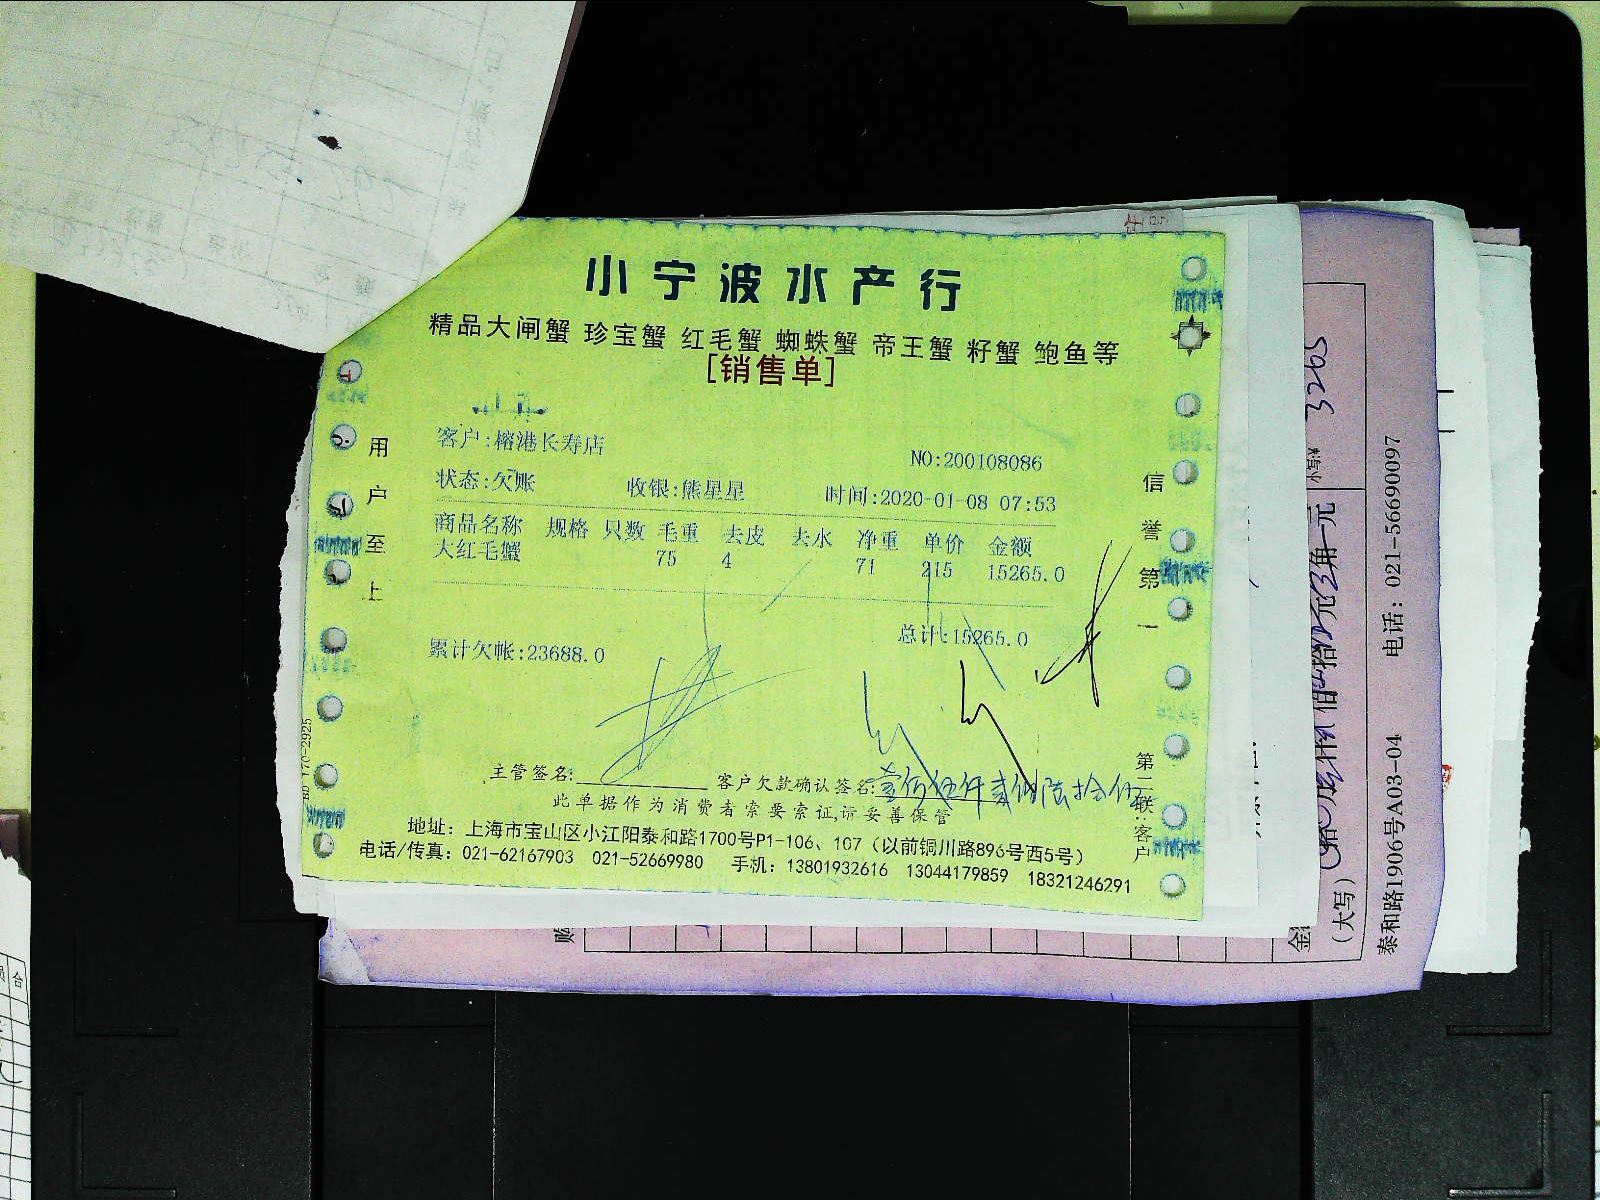 小宁波水产行
精品大闸蟹 珍宝蟹 红毛蟹 蜘蛛蟹 帝王蟹 籽蟹 鲍鱼等
[销售单]
客户:榕港长寿店
NO:200108086
状态:欠账 收银:熊星星 时间:2020-01-08 07:53
商品名称 规格 只数 毛重 去皮 去水 净重 单价 金额
大红毛蟹 75 4 71 215 15265.0
总计:15265.0
累计欠帐:23688.0
主管签名: 客户欠款确认签名:
此单据作为消费者索要索证,请妥善保管
地址：上海市宝山区小江阳泰和路1700号P1-106、107（以前铜川路896号西5号）
电话/传真：021-62167903 021-52669980 手机：13801932616 13044179859 18321246291
用户至上
信誉第一
第二联:客户
3265
（大写）
泰和路1906号A03-04 电话：021-56690097